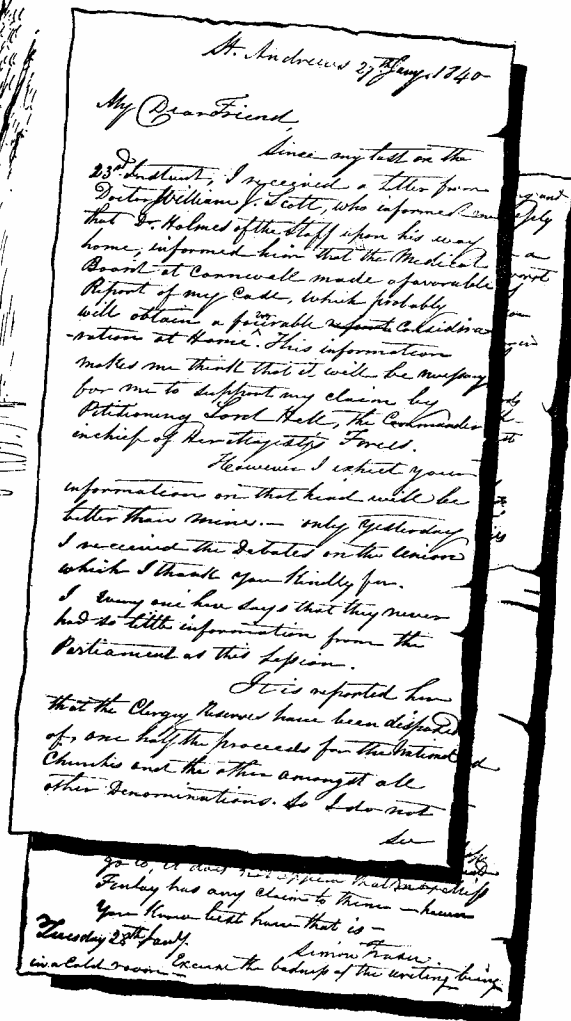 St. Andrews 27th Jany. 1840
My Dear Friend,
Since my last on the
23rd Instant, I received a letter from
Doctor William J. Scott, who informed me
that Dr. Holmes of the Staff upon his way
home, informed him that the Medical
Board at Cornwall made a favorable
Report of my Case, which probably
will obtain a favourable Considera
-ration at Home. This information
makes me think that it will be necessary
for me to support my claim by
Petitioning Lord Hill, the Commander
in chief of Her Majesty's Forces.
However I expect your
information on that head will be
better than mine. — only yesterday
I received the Debates on the Union
which I thank you kindly for.
I Every one here says that they never
had so little information from the
Parliament as this Session.
It is reported here
that the Clergy Reserves have been disposed
of, one half the proceeds for the National
Churches and the other amongst all
other Denominations. So I do not
See
go to, it does not appear that
Finlay has any claim to them — however
You Know best how that is —
Simon Fraser.
Tuesday 28th Jany.
in a Cold room — Excuse the badness of the writing being